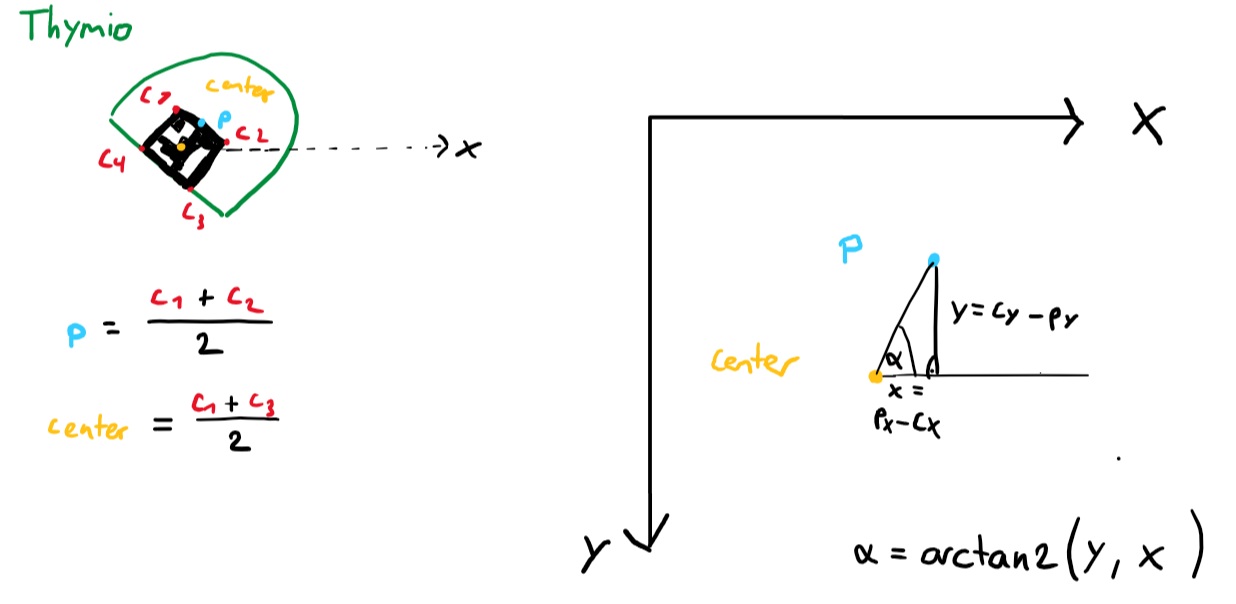 Thymio
center
C1
P
C2
C4
C3
x
P = C1 + C2 / 2
center = C1 + C3 / 2
X
P
y = Cy - Py
center
α
x =
Px - Cx
y
α = arctan2(y, x)